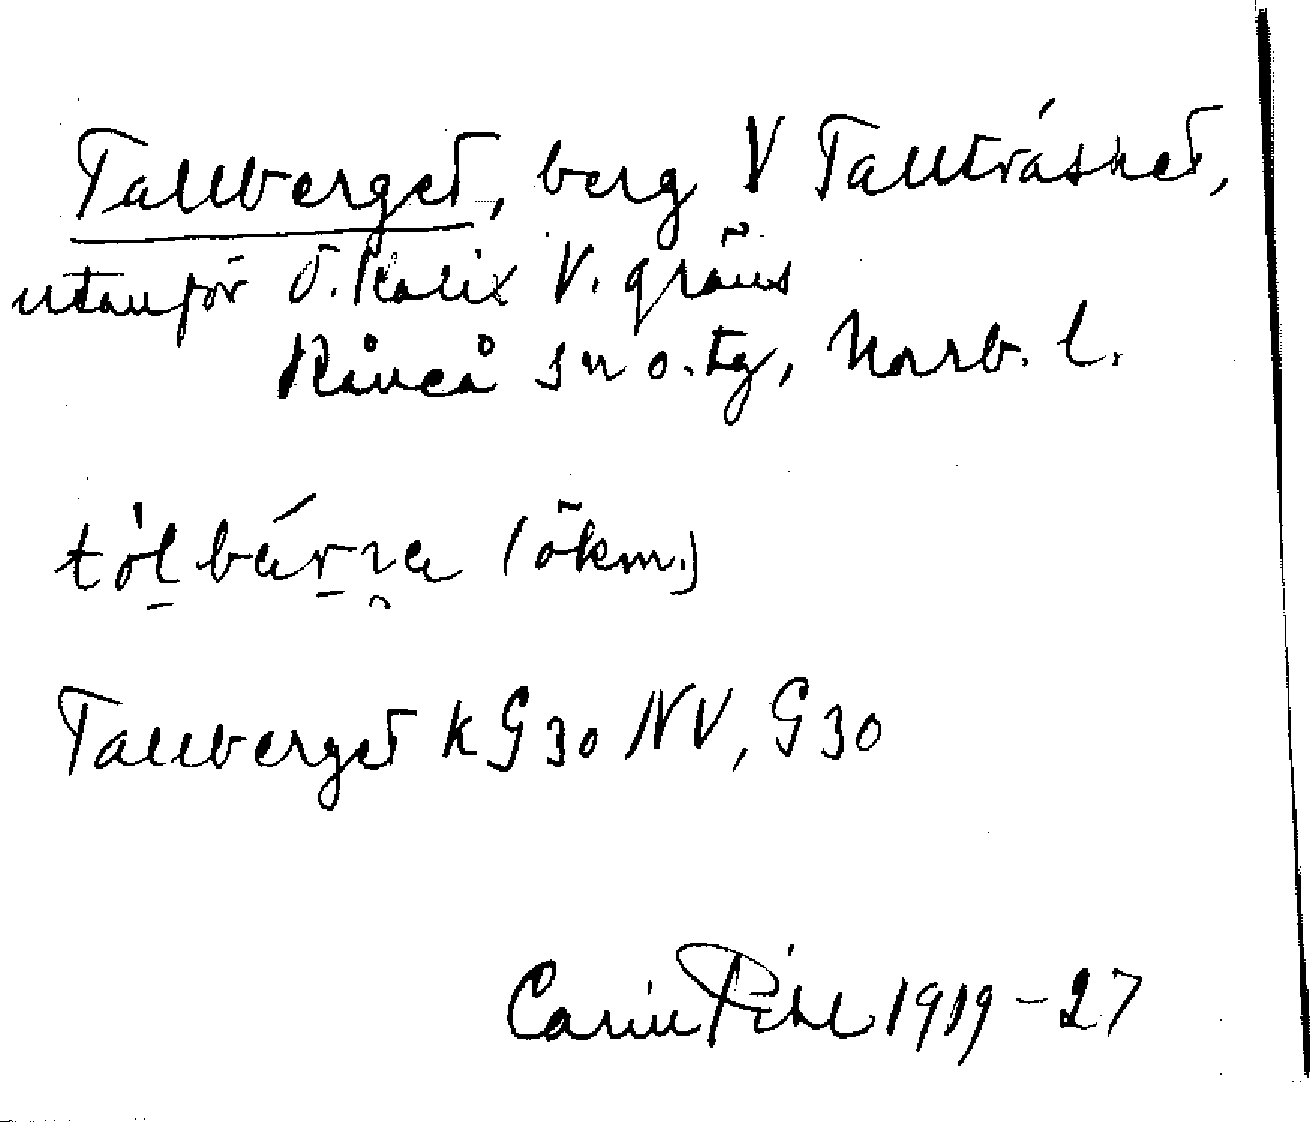 Tallberget, berg V Tallträsket,
utanför Ö. Kalix V. gräns
Råneå sn o. tg, Norrb. l.
(ökm.)
Tallberget k G 30 NV, G 30
Carin Pihl 1919-27